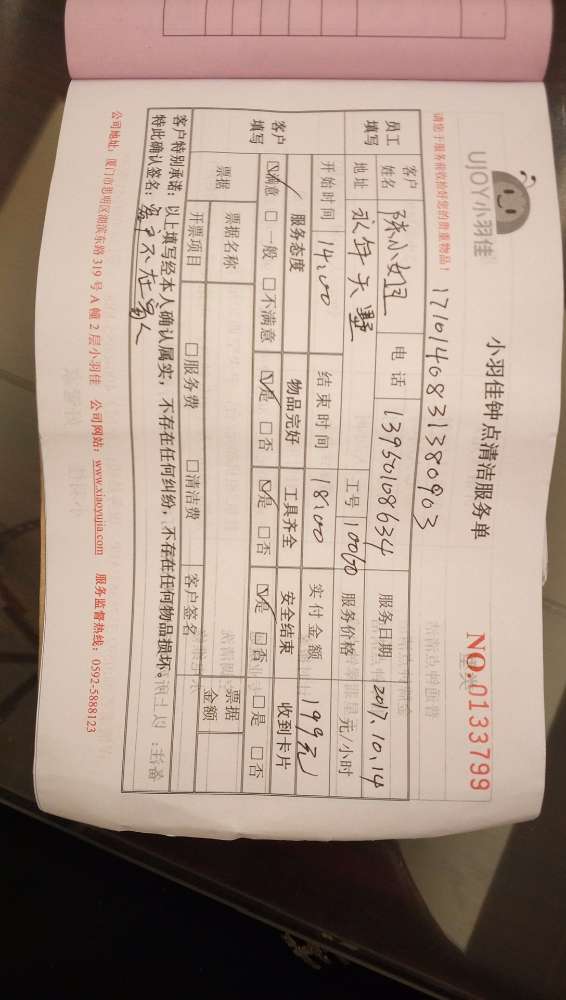 UJOY小羽佳
小羽佳钟点清洁服务单
NO.0133799
请您于服务前收拾好您的贵重物品!
17101408313380903
员工填写
客户姓名 陈小姐 电话 13950108634 服务日期 2017.10.14
地址 永年天墅 工号 10060 服务价格 元/小时
开始时间 14:00 结束时间 18:00 实付金额 199元
客户填写
服务态度 物品完好 工具齐全 安全结束 收到卡片
☑满意 □一般 □不满意 ☑是 □否 ☑是 □否 ☑是 □否 □是 □否
票据 票据名称 票据金额
开票项目 □服务费 □清洁费 客户签名
客户特别承诺:以上填写经本人确认属实,不存在任何纠纷,不存在任何物品损坏。
特此确认签名: 客户不在家
公司地址:厦门市思明区湖滨东路319号A幢2层小羽佳 公司网站:www.xiaoyujia.com 服务监督热线:0592-5888123